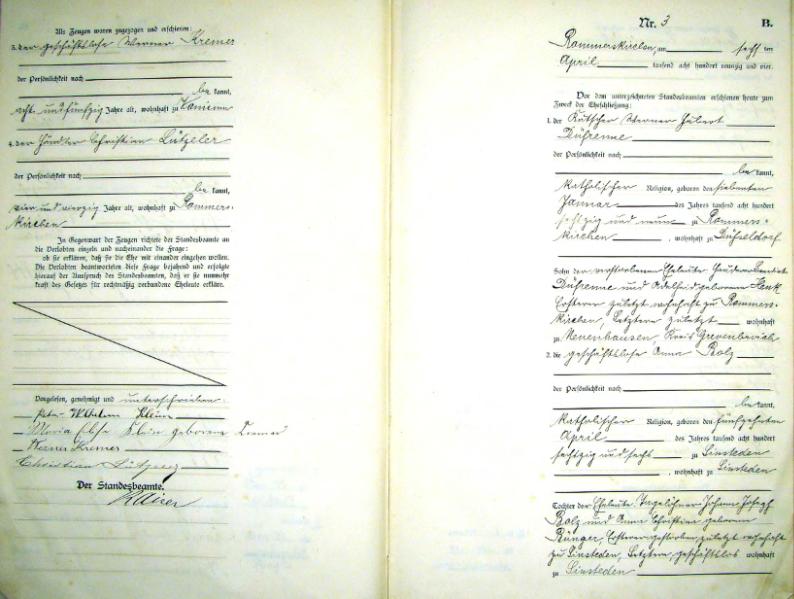 Als Zeugen waren zugezogen und erschienen:
3. der geschäftslose Werner Kremer
der Persönlichkeit nach
be kannt,
acht und fünfzig Jahre alt, wohnhaft zu
4. der Händler Christian Lützeler
der Persönlichkeit nach
be kannt,
vier und vierzig Jahre alt, wohnhaft zu Rommers-
kirchen
In Gegenwart der Zeugen richtete der Standesbeamte an
die Verlobten einzeln und nacheinander die Frage:
ob sie erklären, daß sie die Ehe mit einander eingehen wollen.
Die Verlobten beantworteten diese Frage bejahend und erfolgte
hierauf der Ausspruch des Standesbeamten, daß er sie nunmehr
kraft des Gesetzes für rechtmäßig verbundene Eheleute erkläre.
Vorgelesen, genehmigt und unterschrieben:
Peter Wilhelm Klein
Maria Elise Klein geborene Kremer
Werner Kremer
Christian Lützeler
Der Standesbeamte.
Nr. 3 B.
Rommerskirchen, am sechsten
April tausend acht hundert neunzig und vier.
Vor dem unterzeichneten Standesbeamten erschienen heute zum
Zweck der Eheschließung:
1. der Kutscher Werner Hubert
Düfrenne
der Persönlichkeit nach
be kannt,
katholischer Religion, geboren den siebenten
Januar des Jahres tausend acht hundert
sechzig und neun zu Rommers-
kirchen, wohnhaft zu Düsseldorf
Sohn der verstorbenen Eheleute
Düfrenne und Adelheid geborene Henk
Ersterer zuletzt wohnhaft zu Rommers-
kirchen, Letztere zuletzt wohnhaft
zu Neuenhausen, Kreis Grevenbroich
2. die geschäftslose Anna Bolz
der Persönlichkeit nach
be kannt,
katholischer Religion, geboren den fünfzehnten
April des Jahres tausend acht hundert
sechzig und sechs zu Sinsteden
, wohnhaft zu Sinsteden
Tochter der Eheleute Tagelöhner Johann Joseph
Bolz und Anna Christina geborene
Ersterer gestorben, zuletzt wohnhaft
zu Sinsteden, Letztere, geschäftslos wohnhaft
zu Sinsteden